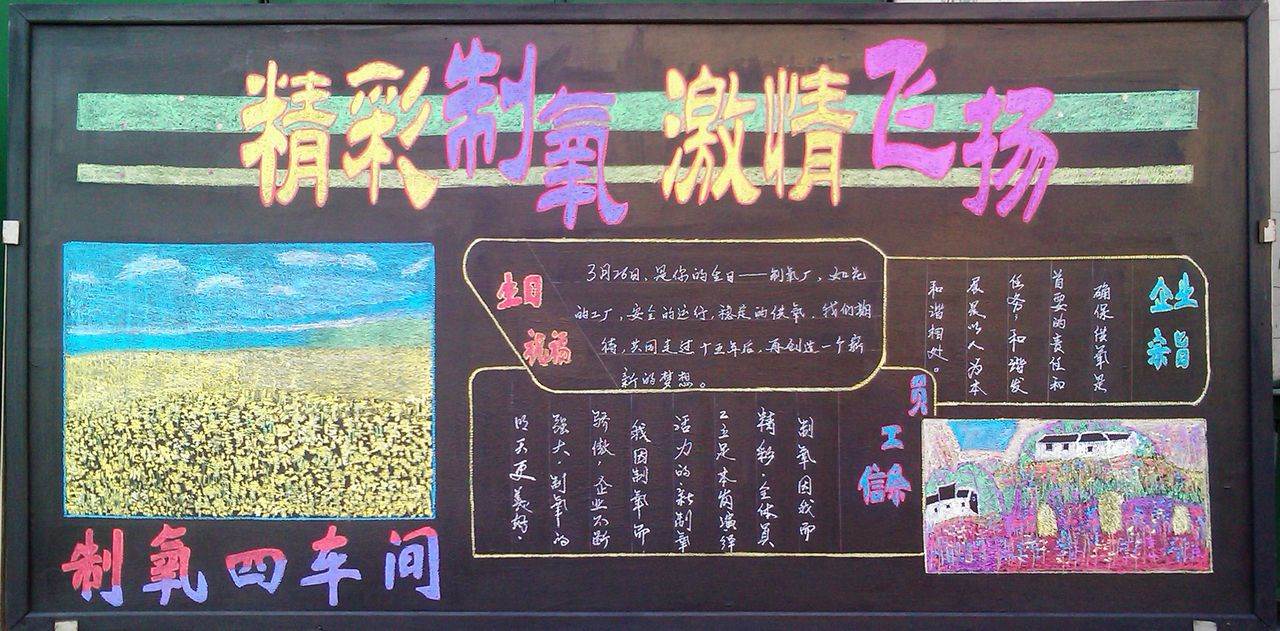 精彩制氧 激情飞扬
生日
祝福
3月26日，是你的生日——制氧厂，如花
的工厂，安全的运行，稳定的供氧，我们期
待，共同走过十五年后，再创造一个崭
新的梦想。
企业
宗旨
确保供氧是
首要的责任和
任务，和谐发
展是以人为本
和谐相处。
员
工
信条
制氧因我而
精彩，全体员
工立足本岗演绎
活力的新制氧
我因制氧而
骄傲，企业不断
强大，制氧的
明天更美好。
制氧四车间